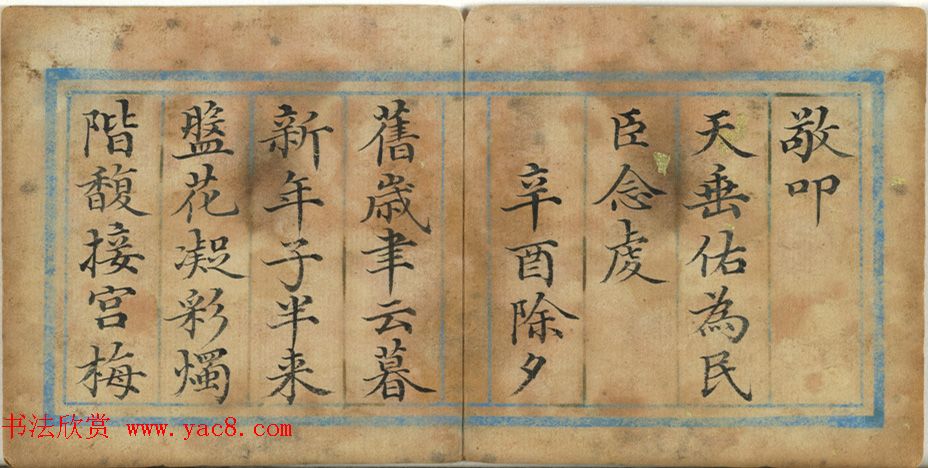 敬叩
天垂佑為民
臣念虔
辛酉除夕
舊歲聿云暮
新年子半来
盤花凝彩燭
階馥接宮梅
书法欣赏 www.yac8.com